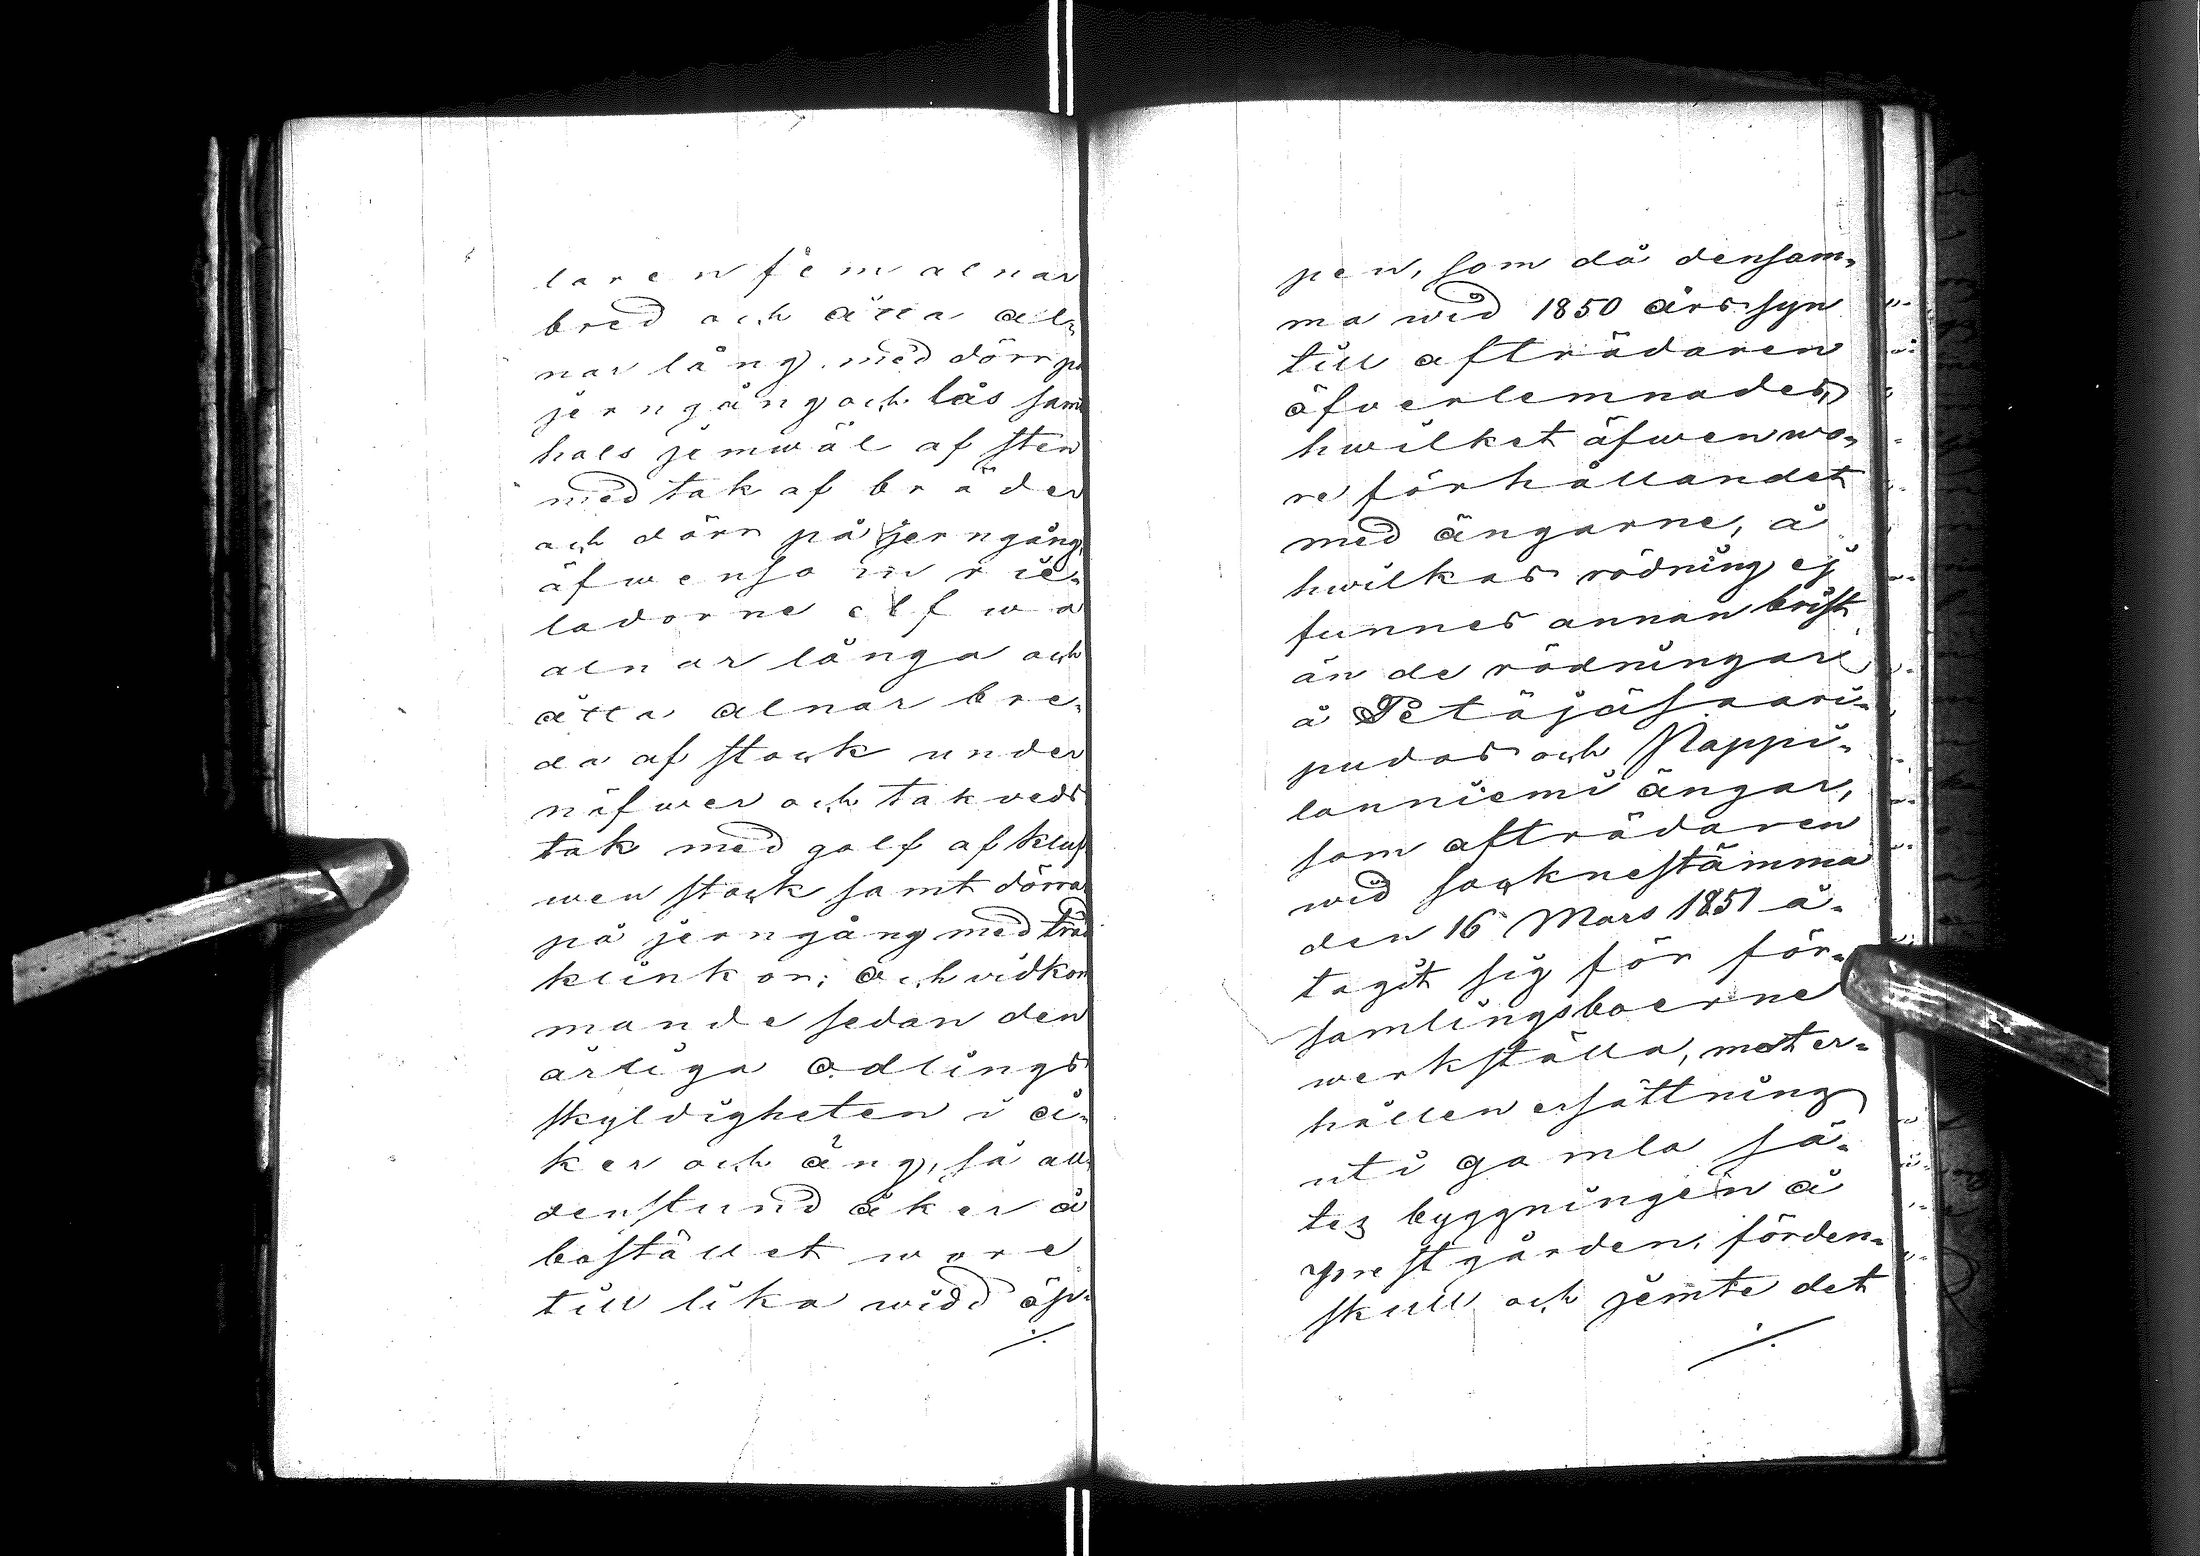 laren fem alnar
bred och åtta al-
nar lång, med dörr på
jerngång och lås samt
hals jemwäl af sten
med tak af bräder
och dörr på jerngång,
äfwensom rie-
ladorne elfwa
alnar långa och
åtta alnar bre-
da af stock under
näfwer och takveds
tak med golf af kluf-
wen stock samt dörrar
på jerngång med träd
klinkor; och vidkom
mande sedan den
årliga odlings
skyldigheten i å-
ker och äng, så all-
denstund åker å
bostället wore
till lika widd öp-
./.
pen, som då densam-
ma wid 1850 års syn
till afträdaren
öfwerlemnades,
hwilket äfwen wo-
re förhållandet
med ängarne, å
hwilkas rödning ej
funnes annan brist
än de rödningar
å Petäjäsaari-
pudas och Nappi-
lanniemi ängar,
som afträdaren
wid socknestämma
den 16 Mars 1851 å-
tagit sig för för-
samlingsboerne
werkställa, mot er-
hållen ersättning
uti gamla sä-
tes byggningen å
prestgården, förden-
skull och jemte det
./.